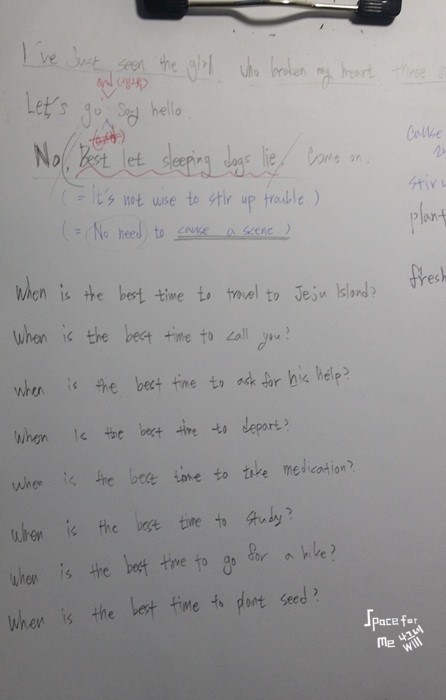 I've Just seen the girl who broken my heart three
Let's go say hello
No, best let sleeping dogs lie. Come on.
(= It's not wise to stir up trouble)
(= No need to cause a scene)
cause
stir
plant
fresh
When is the best time to travel to Jeju Island?
When is the best time to call you?
when is the best time to ask for his help?
When is the best time to depart?
when is the best time to take medication?
when is the best time to study?
when is the best time to go for a hike?
When is the best time to plant seed?
Space for
Me
Will